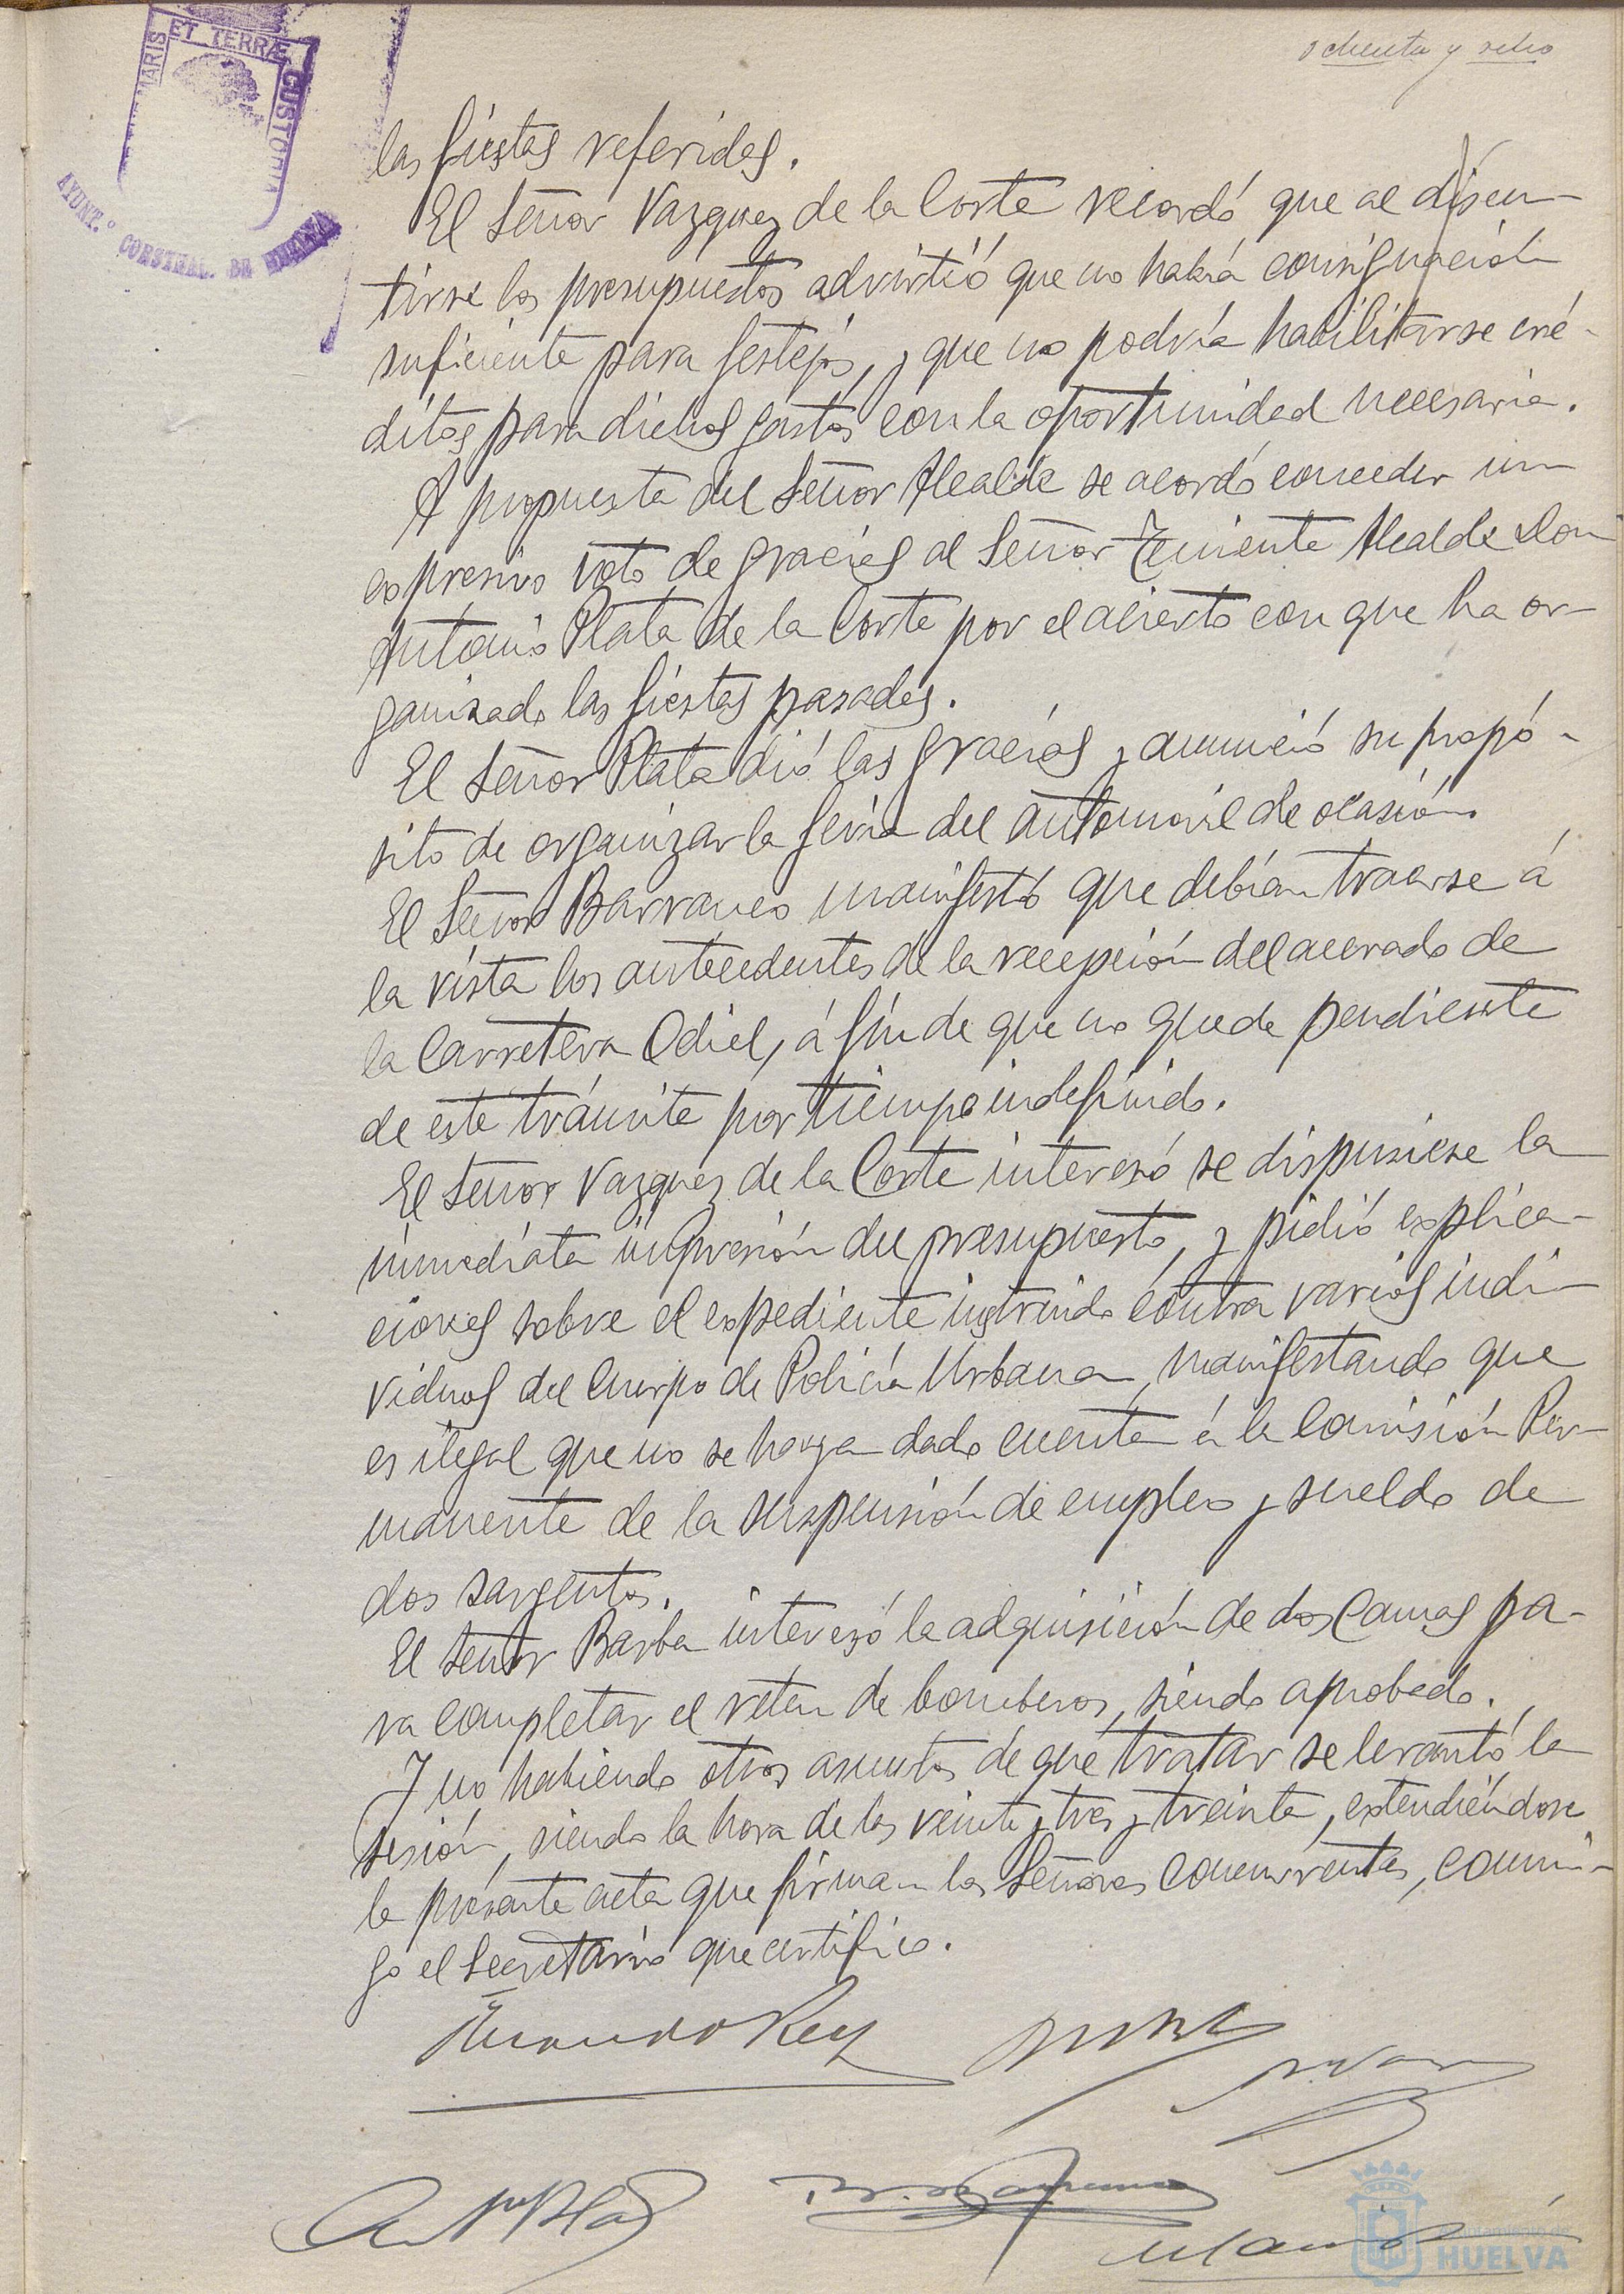 ochenta y ocho
MARIS ET TERRÆ CUSTODIA
AYUNT.º CONSTNAL. DE HUELVA
las fiestas referidas.
El Señor Vazquez de la Corte recordó que al discu-
tirse los presupuestos advirtió que no habrá consignación
suficiente para festejos, y que no podría habilitarse cré-
ditos para dichos gastos con la oportunidad necesaria.
A propuesta del Señor Alcalde se acordó conceder un
expresivo voto de gracias al Señor Teniente Alcalde Don
Antonio Plata de la Corte por el acierto con que ha or-
ganizado las fiestas pasadas.
El Señor Plata dió las gracias y anunció su propó-
sito de organizar la feria del automóvil de ocasión.
El Señor Barranco manifestó que debían traerse á
la vista los antecedentes de la recepción del acerado de
la Carretera Odiel, á fin de que no quede pendiente
de este trámite por tiempo indefinido.
El Señor Vazquez de la Corte interesó se dispusiese la
inmediata impresión del presupuesto, y pidió explica-
ciones sobre el expediente instruido contra varios indi-
viduos del Cuerpo de Policía Urbana, manifestando que
es ilegal que no se haya dado cuenta á la Comisión Per-
manente de la suspensión de empleo y sueldo de
dos sargentos.
El Señor Barba interesó la adquisición de dos camas pa-
ra completar el reten de bomberos, siendo aprobado.
Y no habiendo otros asuntos de qué tratar se levantó la
sesión, siendo la hora de las veinte y tres y treinta, extendiéndose
la presente acta que firman los Señores concurrentes, conmi-
go el Secretario que certifico.
Ayuntamiento de
HUELVA